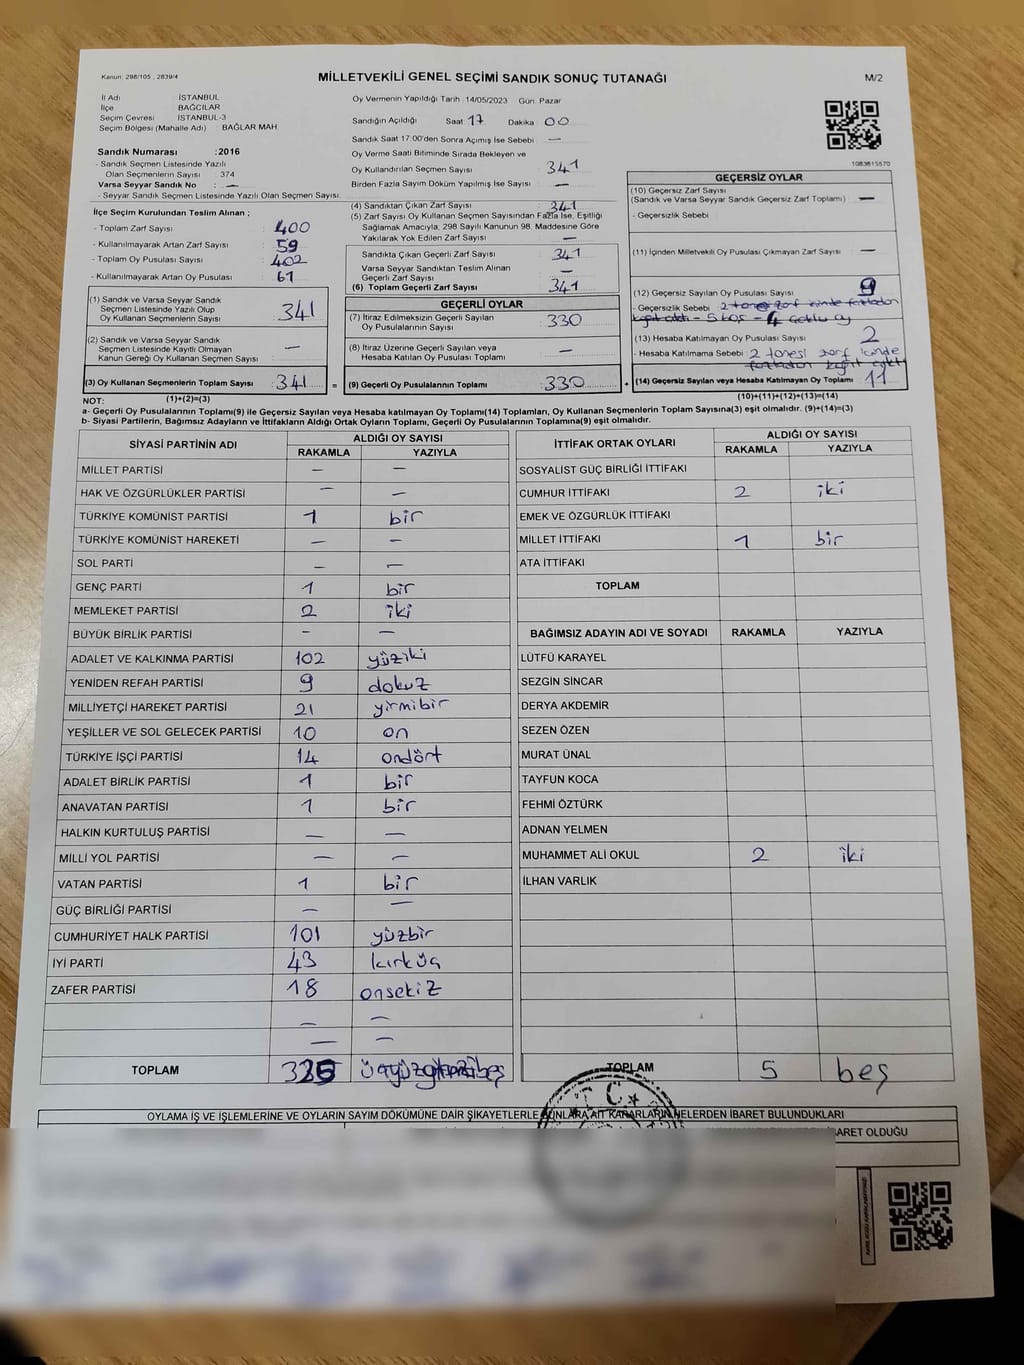 Kanun: 298/105 , 2839/4
MİLLETVEKİLİ GENEL SEÇİMİ SANDIK SONUÇ TUTANAĞI
M/2
İl Adı : İSTANBUL
İlçe : BAĞCILAR
Seçim Çevresi : İSTANBUL-3
Seçim Bölgesi (Mahalle Adı) : BAĞLAR MAH
Sandık Numarası :2016
- Sandık Seçmen Listesinde Yazılı
Olan Seçmenlerin Sayısı : 374
Varsa Seyyar Sandık No : —
- Seyyar Sandık Seçmen Listesinde Yazılı Olan Seçmen Sayısı:
Oy Vermenin Yapıldığı Tarih :14/05/2023 Gün: Pazar
Sandığın Açıldığı Saat: 17 Dakika: 00
Sandık Saat 17:00'den Sonra Açılmış İse Sebebi : —
Oy Verme Saati Bitiminde Sırada Bekleyen ve
Oy Kullandırılan Seçmen Sayısı : 341
Birden Fazla Sayım Döküm Yapılmış İse Sayısı : —
1083615570
İlçe Seçim Kurulundan Teslim Alınan ;
- Toplam Zarf Sayısı : 400
- Kullanılmayarak Artan Zarf Sayısı : 59
- Toplam Oy Pusulası Sayısı : 402
- Kullanılmayarak Artan Oy Pusulası : 61
(1) Sandık ve Varsa Seyyar Sandık
Seçmen Listesinde Yazılı Olup
Oy Kullanan Seçmenlerin Sayısı : 341
(2) Sandık ve Varsa Seyyar Sandık
Seçmen Listesinde Kayıtlı Olmayan
Kanun Gereği Oy Kullanan Seçmen Sayısı : —
(3) Oy Kullanan Seçmenlerin Toplam Sayısı : 341 =
(1)+(2)=(3)
(4) Sandıktan Çıkan Zarf Sayısı : 341
(5) Zarf Sayısı Oy Kullanan Seçmen Sayısından Fazla İse, Eşitliği
Sağlamak Amacıyla; 298 Sayılı Kanunun 98. Maddesine Göre
Yakılarak Yok Edilen Zarf Sayısı : —
Sandıkta Çıkan Geçerli Zarf Sayısı : 341
Varsa Seyyar Sandıktan Teslim Alınan
Geçerli Zarf Sayısı : —
(6) Toplam Geçerli Zarf Sayısı : 341
GEÇERLİ OYLAR
(7) İtiraz Edilmeksizin Geçerli Sayılan
Oy Pusulalarının Sayısı : 330
(8) İtiraz Üzerine Geçerli Sayılan veya
Hesaba Katılan Oy Pusulası Toplamı : —
(9) Geçerli Oy Pusulalarının Toplamı : 330 +
GEÇERSİZ OYLAR
(10) Geçersiz Zarf Sayısı
(Sandık ve Varsa Seyyar Sandık Geçersiz Zarf Toplamı) : —
- Geçersizlik Sebebi :
(11) İçinden Milletvekili Oy Pusulası Çıkmayan Zarf Sayısı : —
(12) Geçersiz Sayılan Oy Pusulası Sayısı : 9
- Geçersizlik Sebebi : 2 zarf içinde fazladan
kağıt - 5 boş - 4 oy
(13) Hesaba Katılmayan Oy Pusulası Sayısı : 2
- Hesaba Katılmama Sebebi : 2 tanesi zarf içinde
fazladan kağıt
(14) Geçersiz Sayılan veya Hesaba Katılmayan Oy Toplamı : 11
(10)+(11)+(12)+(13)=(14)
NOT:
a- Geçerli Oy Pusulalarının Toplamı(9) ile Geçersiz Sayılan veya Hesaba katılmayan Oy Toplamı(14) Toplamları, Oy Kullanan Seçmenlerin Toplam Sayısına(3) eşit olmalıdır. (9)+(14)=(3)
b- Siyasi Partilerin, Bağımsız Adayların ve İttifakların Aldığı Ortak Oyların Toplamı, Geçerli Oy Pusulalarının Toplamına(9) eşit olmalıdır.
SİYASİ PARTİNİN ADI ALDIĞI OY SAYISI
RAKAMLA YAZIYLA
MİLLET PARTİSİ — —
HAK VE ÖZGÜRLÜKLER PARTİSİ — —
TÜRKİYE KOMÜNİST PARTİSİ 1 bir
TÜRKİYE KOMÜNİST HAREKETİ — —
SOL PARTİ — —
GENÇ PARTİ 1 bir
MEMLEKET PARTİSİ 2 iki
BÜYÜK BİRLİK PARTİSİ - —
ADALET VE KALKINMA PARTİSİ 102 yüziki
YENİDEN REFAH PARTİSİ 9 dokuz
MİLLİYETÇİ HAREKET PARTİSİ 21 yirmibir
YEŞİLLER VE SOL GELECEK PARTİSİ 10 on
TÜRKİYE İŞÇİ PARTİSİ 14 ondört
ADALET BİRLİK PARTİSİ 1 bir
ANAVATAN PARTİSİ 1 bir
HALKIN KURTULUŞ PARTİSİ — —
MİLLİ YOL PARTİSİ — —
VATAN PARTİSİ 1 bir
GÜÇ BİRLİĞİ PARTİSİ — —
CUMHURİYET HALK PARTİSİ 101 yüzbir
İYİ PARTİ 43 kırküç
ZAFER PARTİSİ 18 onsekiz
— —
— —
TOPLAM 325
İTTİFAK ORTAK OYLARI ALDIĞI OY SAYISI
RAKAMLA YAZIYLA
SOSYALİST GÜÇ BİRLİĞİ İTTİFAKI
CUMHUR İTTİFAKI 2 iki
EMEK VE ÖZGÜRLÜK İTTİFAKI
MİLLET İTTİFAKI 1 bir
ATA İTTİFAKI
TOPLAM
BAĞIMSIZ ADAYIN ADI VE SOYADI RAKAMLA YAZIYLA
LÜTFÜ KARAYEL
SEZGİN SİNCAR
DERYA AKDEMİR
SEZEN ÖZEN
MURAT ÜNAL
TAYFUN KOCA
FEHMİ ÖZTÜRK
ADNAN YELMEN
MUHAMMET ALİ OKUL 2 iki
İLHAN VARLIK
TOPLAM 5 beş
OYLAMA İŞ VE İŞLEMLERİNE VE OYLARIN SAYIM DÖKÜMÜNE DAİR ŞİKAYETLERLE BUNLARA AİT KARARLARIN NELERDEN İBARET BULUNDUKLARI
BARET OLDUĞU
T.C.